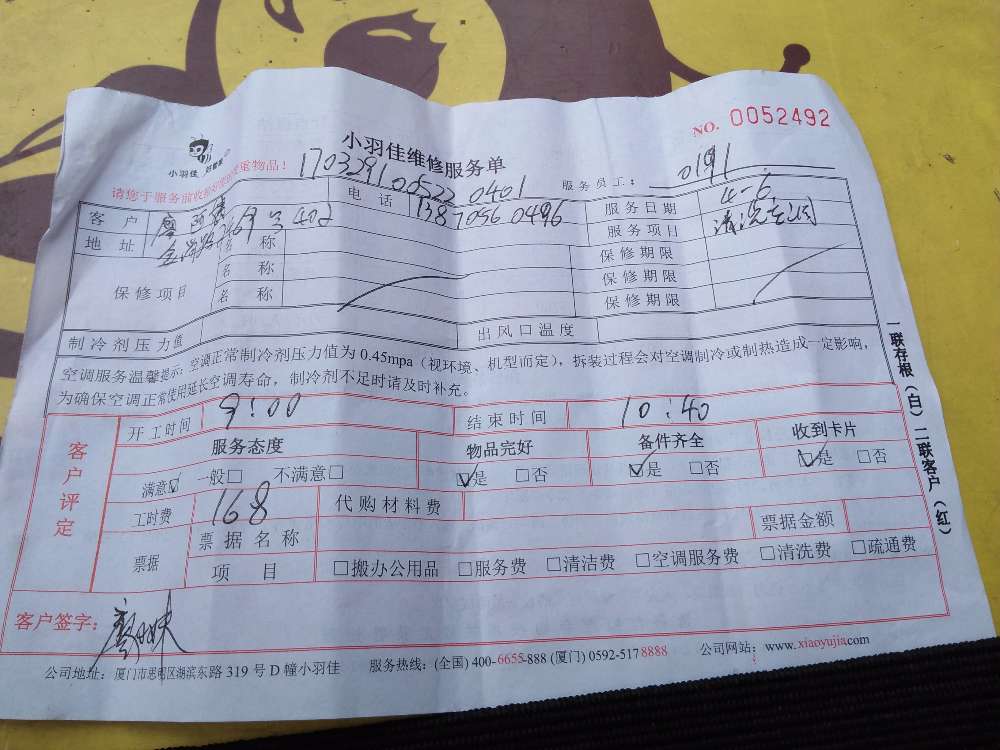 NO. 0052492
小羽佳
小羽佳维修服务单
请您于服务前收
物品！
1703291005220401
服务员工： 0191
客户
电话 138 7056 0496
服务日期 4-6
地址
469号402
名称
服务项目 清洗空调
保修期限
保修项目
名称
保修期限
名称
保修期限
制冷剂压力值
出风口温度
空调服务温馨提示：空调正常制冷剂压力值为0.45mpa（视环境、机型而定），拆装过程会对空调制冷或制热造成一定影响，
为确保空调正常使用延长空调寿命，制冷剂不足时请及时补充。
客户评定
开工时间 9:00 结束时间 10:40
服务态度 物品完好 备件齐全 收到卡片
满意☑ 一般□ 不满意□ ☑是 □否 ☑是 □否 ☑是 □否
工时费 168 代购材料费
票据
票据名称
票据金额
项目 □搬办公用品 □服务费 □清洁费 □空调服务费 □清洗费 □疏通费
客户签字：
公司地址：厦门市思明区湖滨东路 319 号 D 幢小羽佳 服务热线：(全国) 400-6655-888 (厦门) 0592-5178888 公司网站：www.xiaoyujia.com
一联存根（白）二联客户（红）